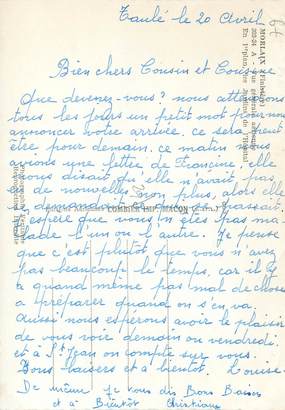 Taulé le 20 Avril
Bien chers Cousin et Cousine
Que devenez-vous? nous attendons
tous les jours un petit mot pour nous
annoncer votre arrivée. ce sera peut
être pour demain. ce matin nous
avions une lettre de Francine, elle
nous disait qu'elle n'avait pas
de nouvelles non plus, alors elle
se demandait ce qui se passait.
J'espère que vous n'êtes pas ma-
lade l'un ou l'autre. Je pense
que c'est plutôt que vous n'avez
pas beaucoup le temps, car il y
a quand même pas mal de choses
a préparer quand on s'en va.
Aussi nous espérons avoir le plaisir
de vous voir demain ou vendredi.
et à St Jean on compte sur vous.
Bons baisers et à bientôt. Louise.
De même je vous dis Bons Baisers
et à Bientôt Christiane
MORLAIX (Finistère)
COMBIER IMP. MACON